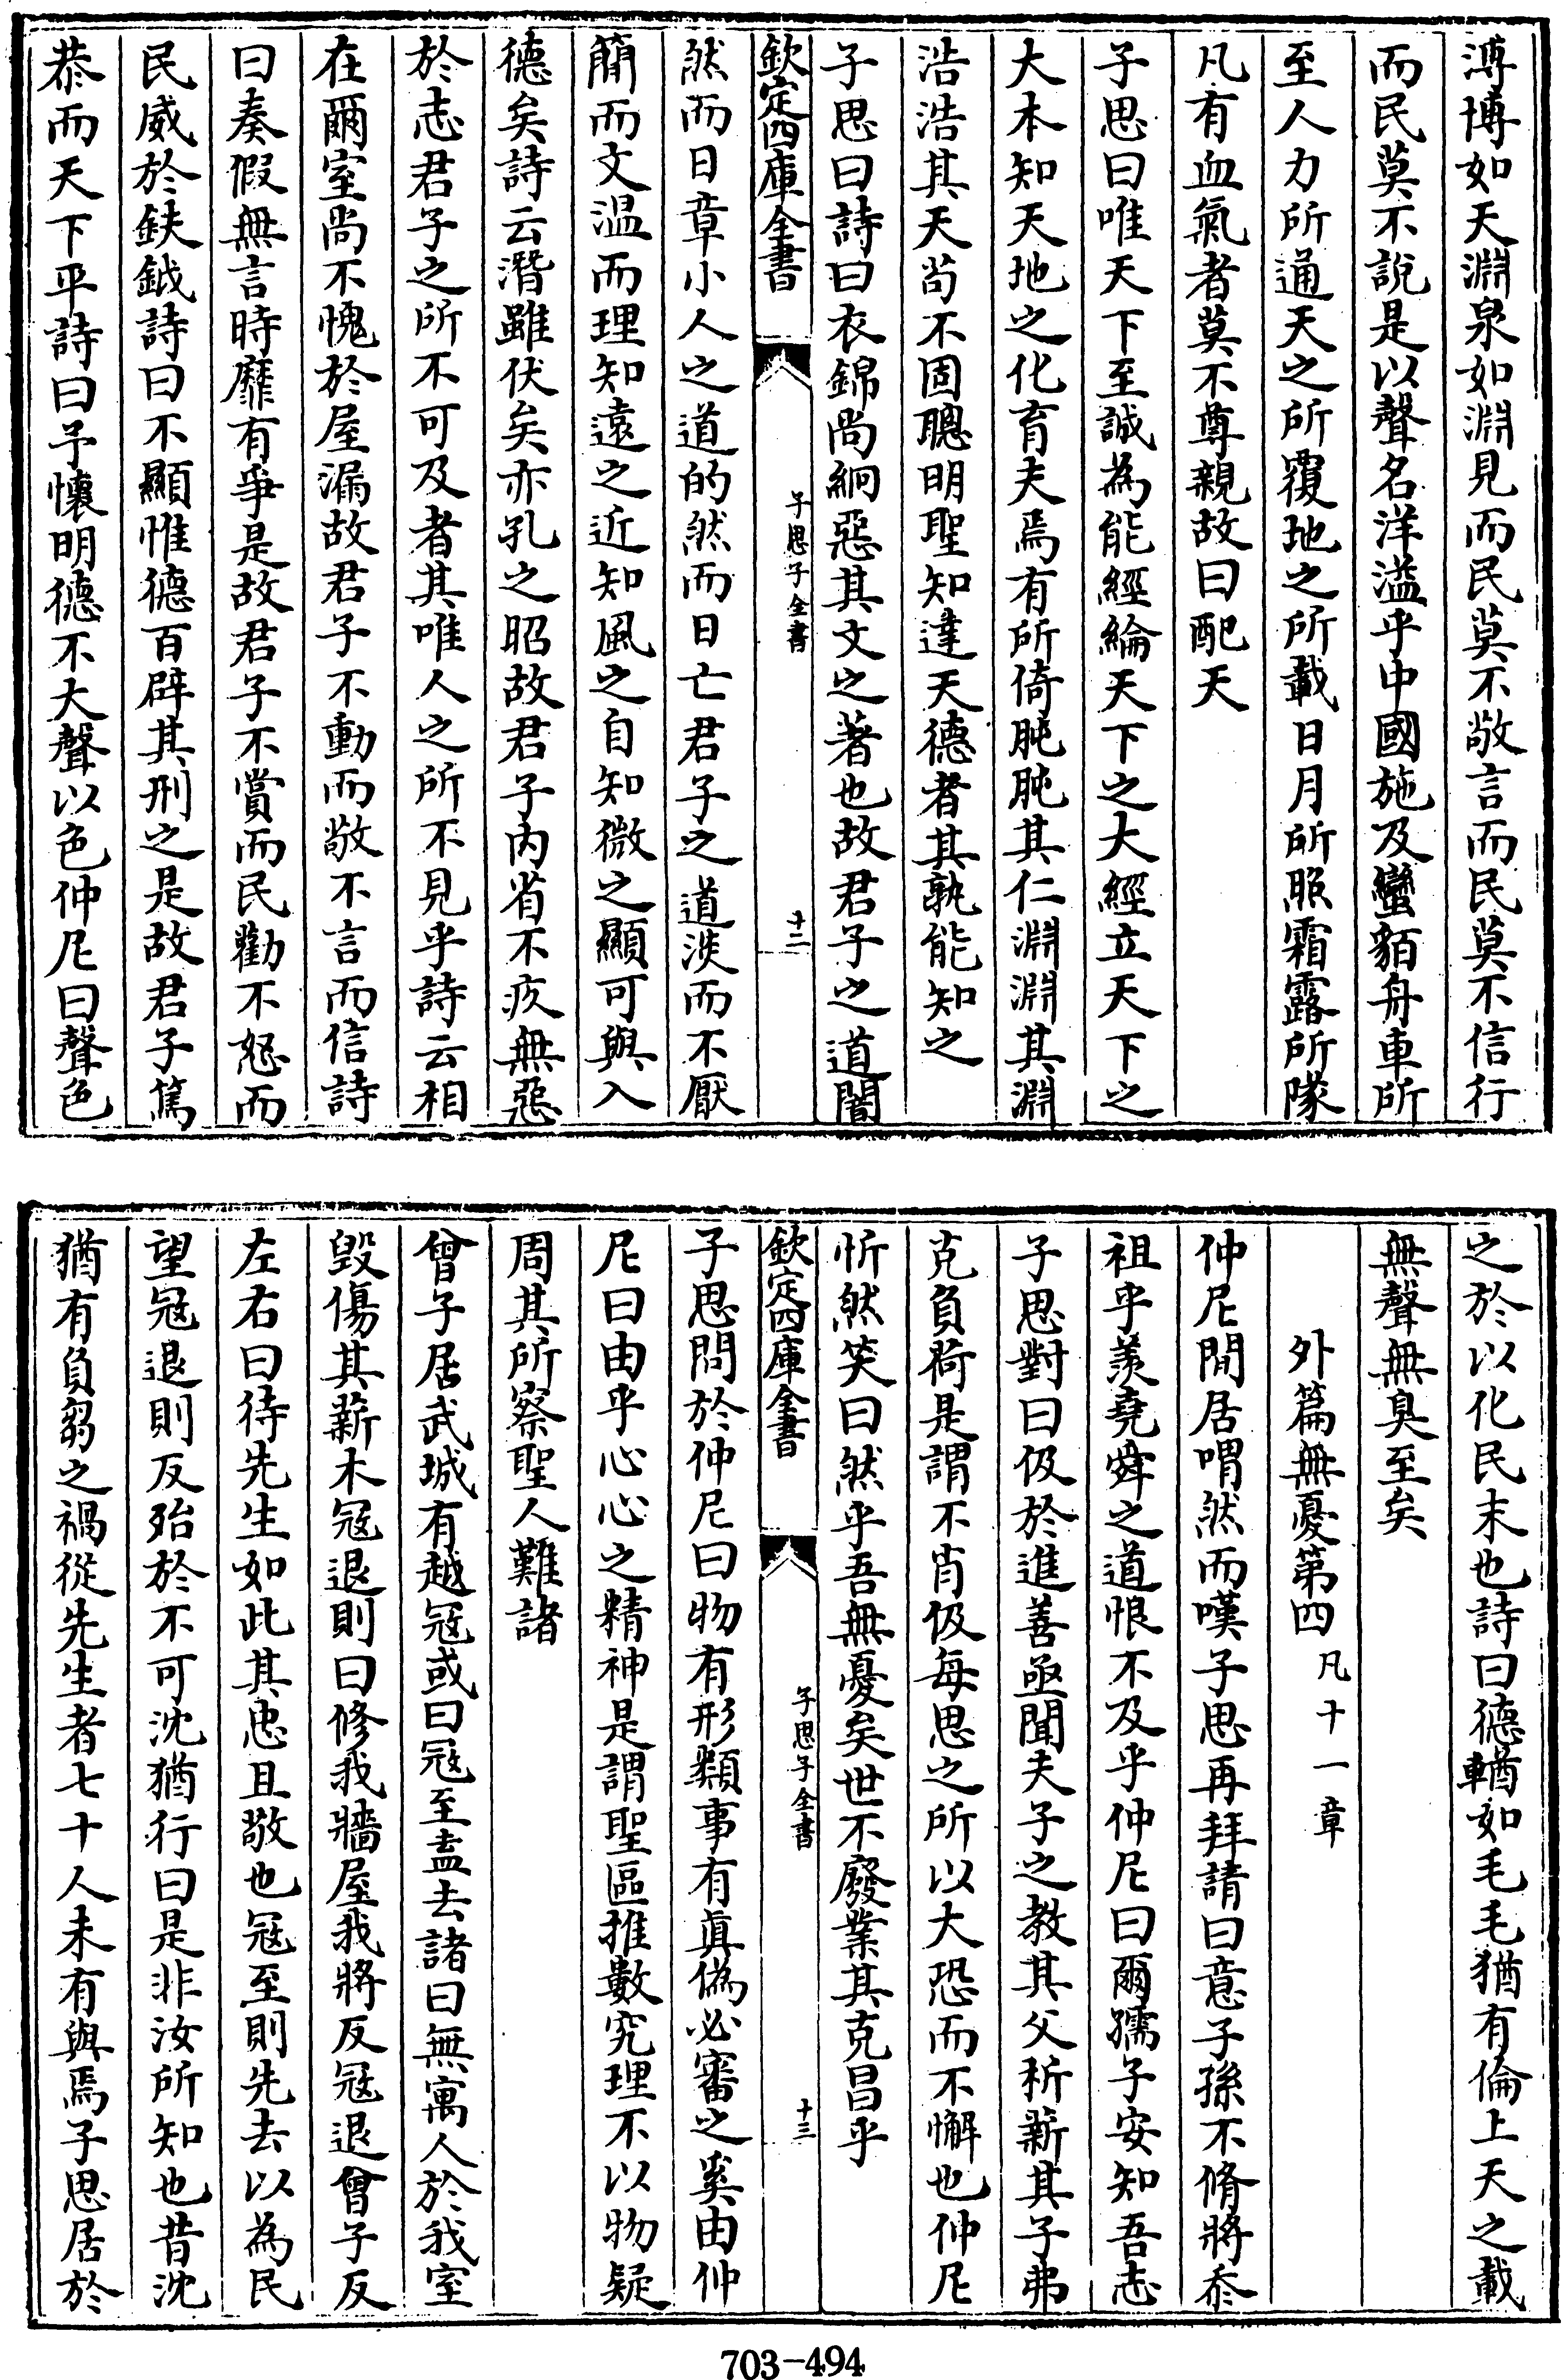 溥博如天淵泉如淵見而民莫不敬言而民莫不信行
而民莫不說是以聲名洋溢乎中國施及蠻貊舟車所
至人力所通天之所覆地之所載日月所照霜露所隊
凡有血氣者莫不尊親故曰配天
子思曰唯天下至誠為能經綸天下之大經立天下之
大本知天地之化育夫焉有所倚肫肫其仁淵淵其淵
浩浩其天茍不固聰明聖知達天德者其孰能知之
子思曰詩曰衣錦尚絅惡其文之著也故君子之道闇
欽定四庫全書
子思子全書
十二
然而日章小人之道的然而日亡君子之道淡而不厭
簡而文温而理知遠之近知風之自知微之顯可與入
德矣詩云潛雖伏矣亦孔之昭故君子內省不疚無惡
於志君子之所不可及者其唯人之所不見乎詩云相
在爾室尚不愧於屋漏故君子不動而敬不言而信詩
曰奏假無言時靡有爭是故君子不賞而民勸不怒而
民威於鈇鉞詩曰不顯惟德百辟其刑之是故君子篤
恭而天下平詩曰予懷明德不大聲以色仲尼曰聲色
之於以化民末也詩曰德輶如毛毛猶有倫上天之載
無聲無臭至矣
外篇無憂第四 凡十一章
仲尼閒居喟然而嘆子思再拜請曰意子孫不脩將忝
祖乎羨堯舜之道恨不及乎仲尼曰爾孺子安知吾志
子思對曰伋於進善亟聞夫子之教其父析薪其子弗
克負荷是謂不肖伋每思之所以大恐而不懈也仲尼
忻然笑曰然乎吾無憂矣世不廢業其克昌乎
欽定四庫全書
子思子全書
十三
子思問於仲尼曰物有形類事有真偽必審之奚由仲
尼曰由乎心心之精神是謂聖區推數究理不以物疑
周其所察聖人難諸
曾子居武城有越寇或曰寇至盍去諸曰無寓人於我室
毀傷其薪木寇退則曰修我牆屋我將反寇退曾子反
左右曰待先生如此其忠且敬也寇至則先去以為民
望寇退則反殆於不可沈猶行曰是非汝所知也昔沈
猶有負芻之禍從先生者七十人未有與焉子思居於
703-494